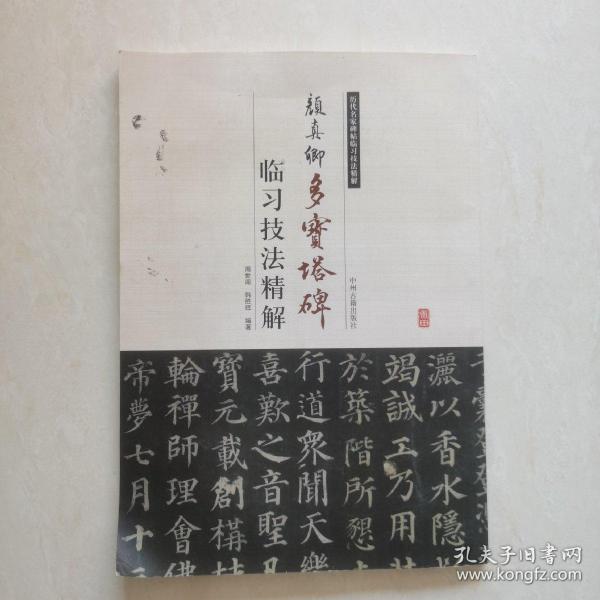 历代名家碑帖临习技法精解
颜真卿
多寶塔碑
临习技法精解
中州古籍出版社
编著
灑以香水隱
竭誠工乃用其
於築階所懇
行道眾聞天樂
喜歎之音聖
寶元載創構
輪禪師理會佛
帝夢七月十三
孔夫子旧书网
www.kongfz.com